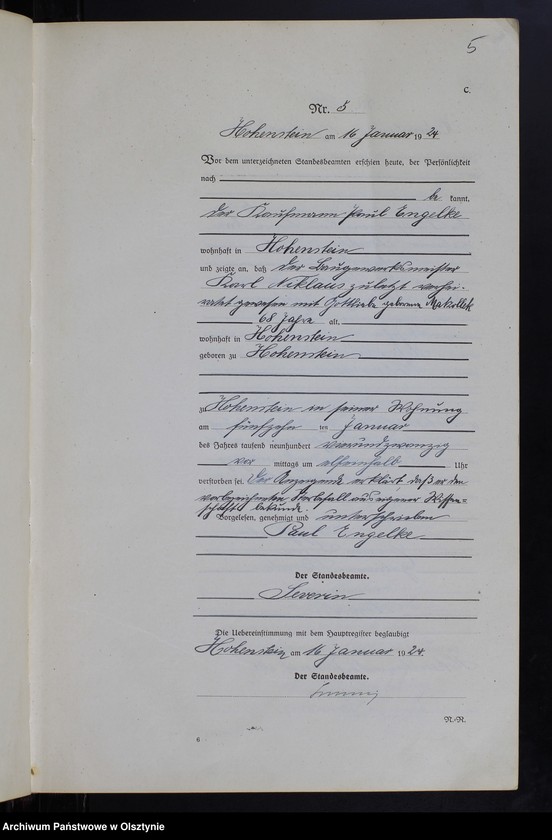 5
C.
Nr. 5
Hohenstein am 16 Januar 1924
Vor dem unterzeichneten Standesbeamten erschien heute, der Persönlichkeit
nach
be kannt,
der Kaufmann Paul Engelke
wohnhaft in Hohenstein
und zeigte an, daß der Baugewerksmeister
Karl Niklaus zuletzt verhei-
ratet gewesen mit Gottliebe geborene Makollek
68 Jahre alt,
wohnhaft in Hohenstein
geboren zu Hohenstein
zu Hohenstein in seiner Wohnung
am fünfzehn ten Januar
des Jahres tausend neunhundert vierundzwanzig
vor mittags um elfeinhalb Uhr
verstorben sei. Der Anzeigende erklärt, daß er den
vorbezeichneten Sterbefall aus eigener Wissen=
schaft bekunde.
Vorgelesen, genehmigt und unterschrieben
Paul Engelke
Der Standesbeamte.
Severin
Die Uebereinstimmung mit dem Hauptregister beglaubigt
Hohenstein am 16 Januar 1924.
Der Standesbeamte.
N.-R.
6
Archiwum Państwowe w Olsztynie